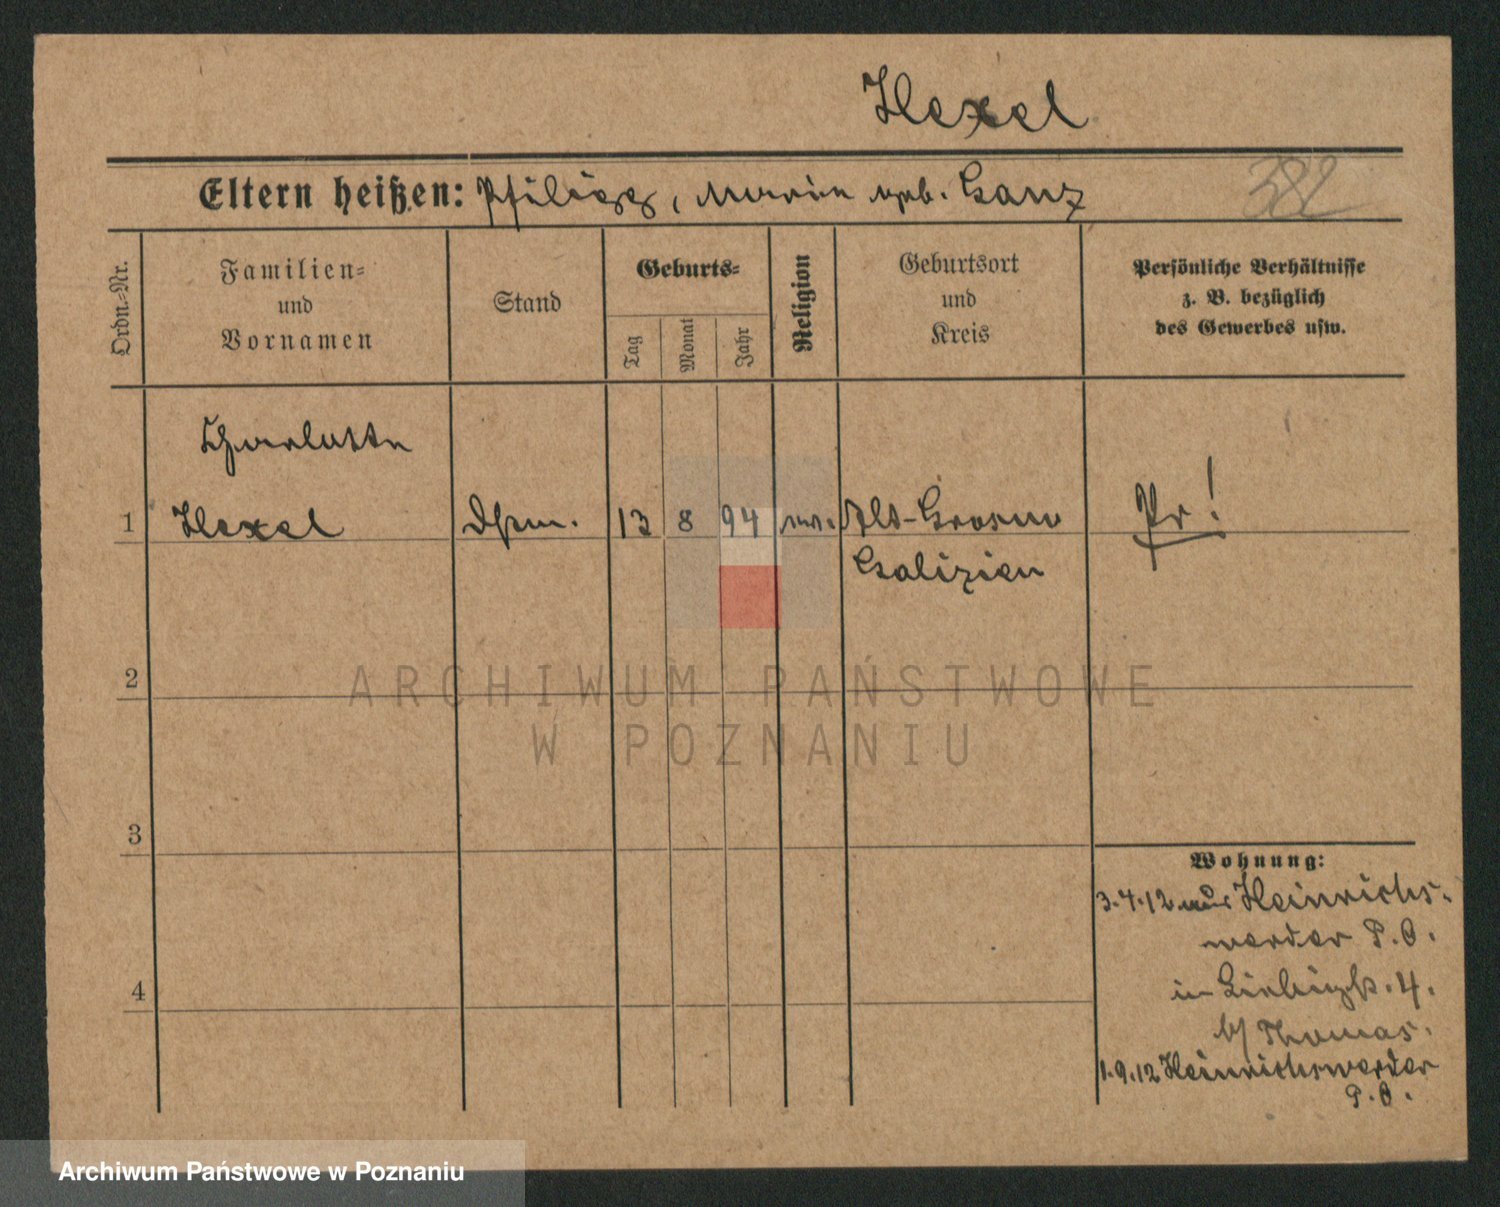 Hexel
Eltern heißen: Philipp, Maria geb. Ganz
382
Ordn.-Nr.
Familien-
und
Vornamen
Stand
Geburts-
Tag
Monat
Jahr
Religion
Geburtsort
und
Kreis
Persönliche Verhältnisse
z. B. bezüglich
des Gewerbes usw.
Charlotte
1 Hexel 13 8 94 Pr!
Galizien
2
3
4
Wohnung:
3.4.12 aus Heinrichs-
werder P.O.
in 4.
b/ Thomas.
1.9.12 Heinrichswerder
P.O.
ARCHIWUM PAŃSTWOWE
W POZNANIU
Archiwum Państwowe w Poznaniu